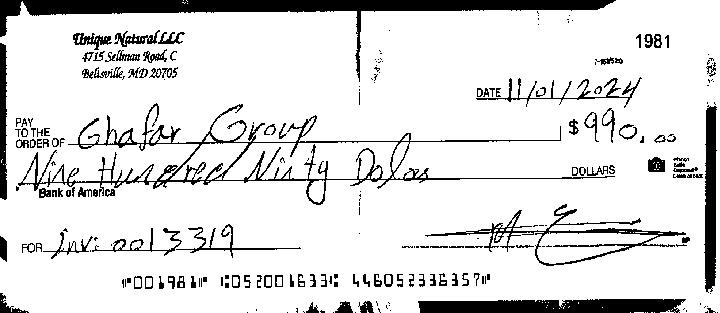 Unique Natural LLC
1981
4715 Sellman Road, C
Beltsville, MD 20705
DATE 11/01/2024
PAY TO THE ORDER OF Ghafar Group $990.00
Nine Hundred Ninty Dolas DOLLARS
Bank of America
FOR Inv: 0013319
⑈001981⑈ ⑆052001633⑆ 446052336357⑈